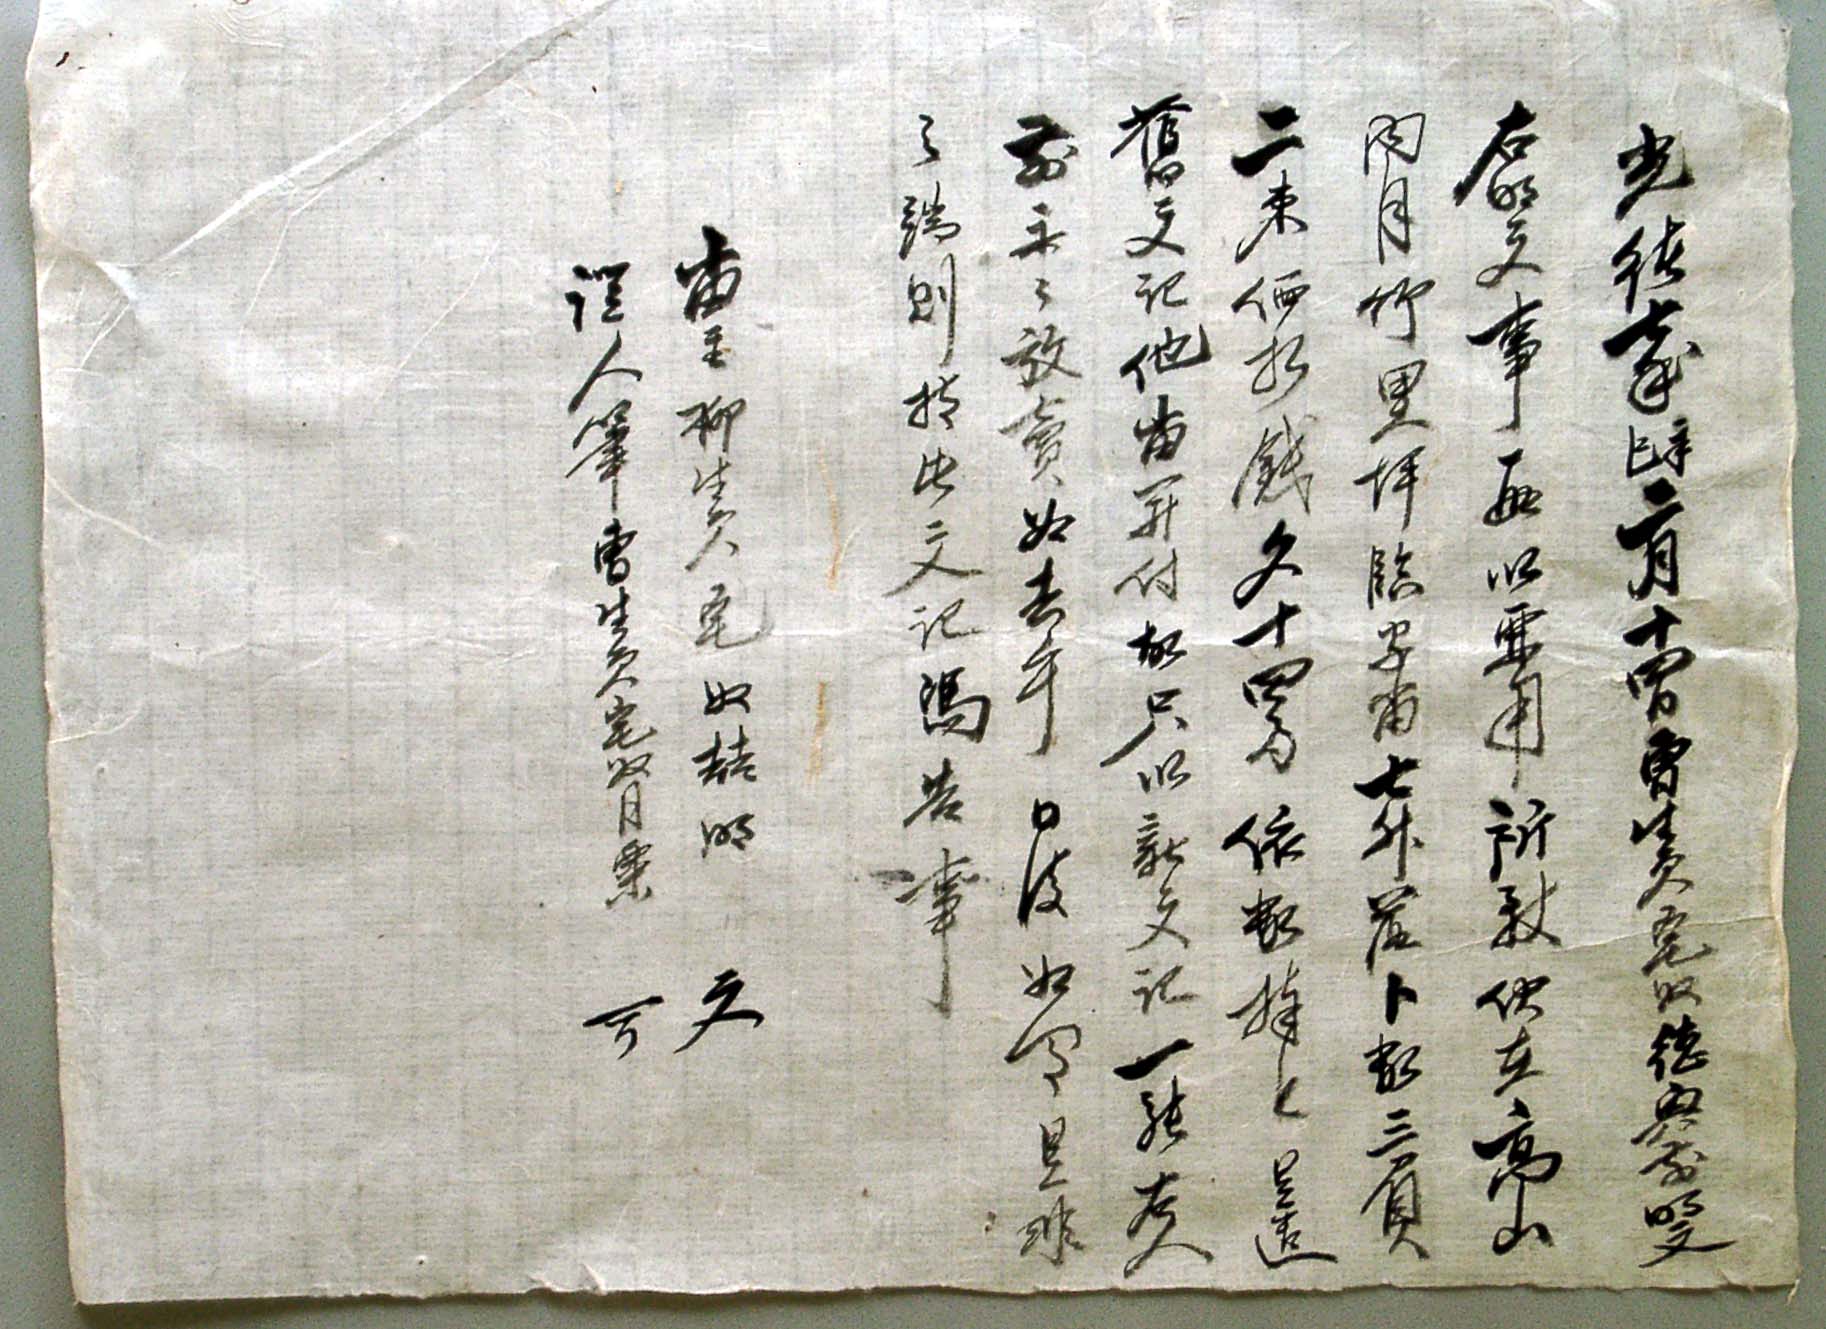 光緖七年辛巳二月十四日曺生員宅奴德興前明文
右明文事段以要用所致伏在高山
內月竹里坪臨字畓七斗落卜數三負
二束価折錢文十四兩依數捧上是遣
舊文記他畓幷付故只以新文記一張右人
前永永放賣如去乎日後如有是非
之端則持此文記馮告事
畓主柳生員宅奴喆明
證人筆曺生員宅奴月業